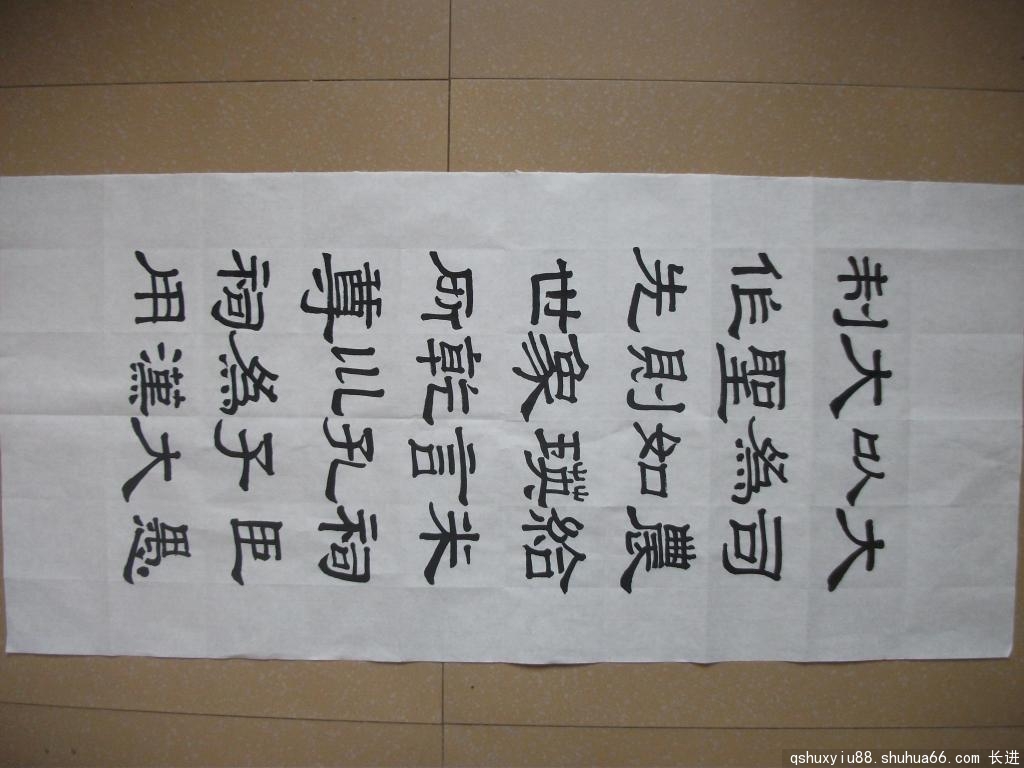 大司農給米祠臣愚
以爲如瑛言孔子大
大聖則象乾川爲漢
制作先世所尊祠用
qshuxyiu88.shuhua66.com 长进